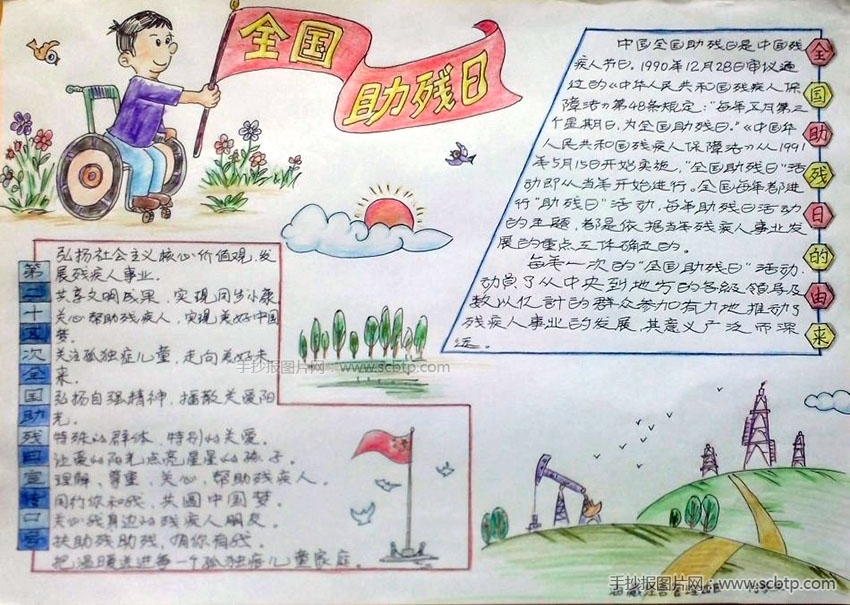 全国
助残日
全国助残日的由来
中国全国助残日是中国残
疾人节日。1990年12月28日审议通
过的《中华人民共和国残疾人保
障法》第48条规定："每年五月第三
个星期日,为全国助残日。"《中国华
人民共和国残疾人保障法》从1991
年5月15日开始实施,"全国助残日"活
动即从当年开始进行。全国每年都进
行"助残日"活动,每年助残日活动
的主题,都是依据当年残疾人事业发
展的重点工体确定的。
每年一次的"全国助残日"活动,
动员了从中央到地方的各级领导及
数以亿計的群众参加有力地推动了
残疾人事业的发展,其意义广泛而深
远。
第二十五次全国助残日宣传口号
弘扬社会主义核心价值观,发
展残疾人事业。
共享文明成果,实现同步小康
关心帮助残疾人,实现美好中国
梦。
关注孤独症儿童,走向美好未
来。
弘扬自强精神,播散关爱阳
光。
特殊的群体,特别的关爱。
让爱的阳光点亮星星的孩子。
理解、尊重、关心、帮助残疾人。
同行你和我,共圆中国梦。
关心我身边的残疾人朋友。
扶助残助残,有你有我。
把温暖送进每一个孤独症儿童家庭。
手抄报图片网:www.scbtp.com
手抄报图片网:www.scbtp.com